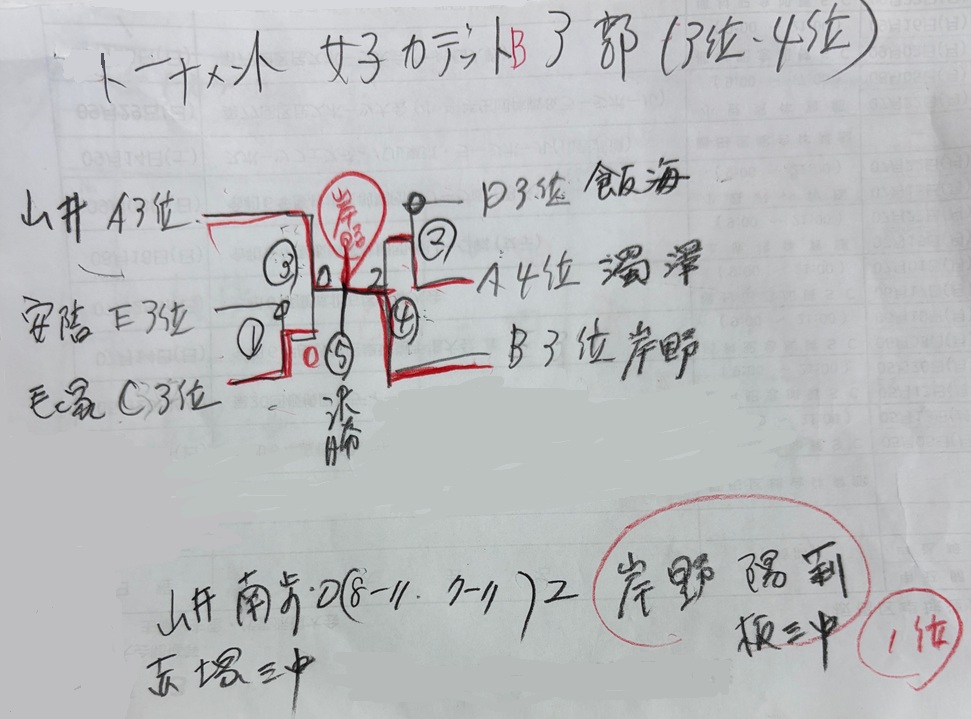 トーナメント 女子カデットBⅠ部 (3位・4位)
山井 A3位
安陪 E3位
毛塚 C3位
岸野
D3位 飯海
A4位 濁澤
B3位 岸野
③
0
2
②
①
4
0
⑤
④
決勝
山井南歩・0(8-11. 7-11)2 岸野 陽
赤塚三中
板三中
1位